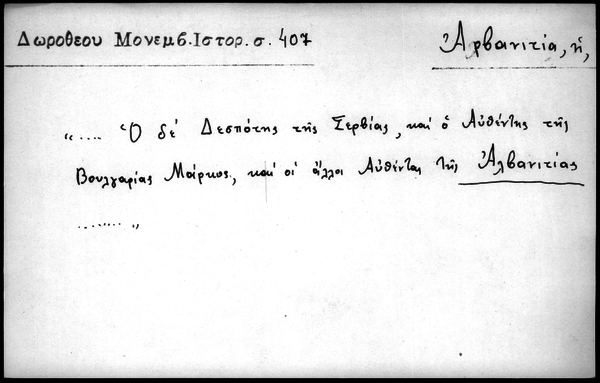 Δωροθεου Μονεμβ.Ιστορ.σ. 407
Ἀρβανιτία, ἡ,
“.... Ὁ δέ Δεσπότης τῆς Σερβίας, καί ὁ Αὐθέντης τῆς
Βουλγαρίας Μάρκος, καί οἱ ἄλλοι Αὐθένται τῆς Ἀλβανιτίας
........ „